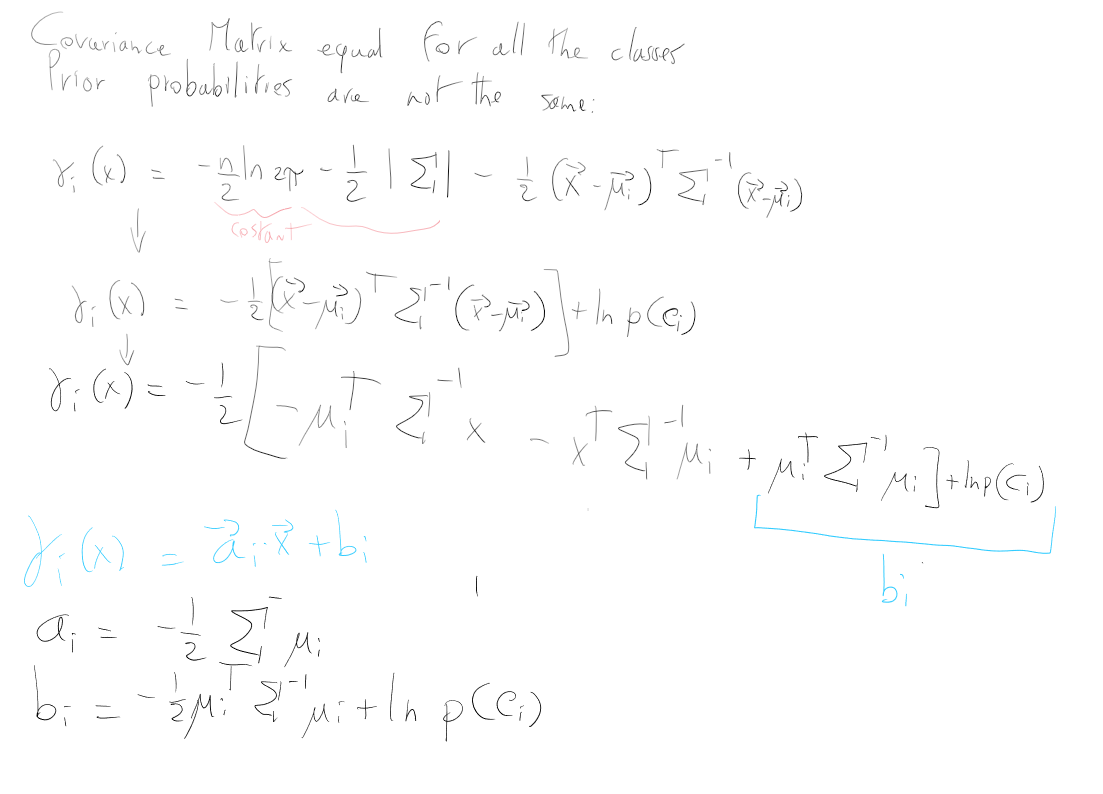 Covariance Matrix equal for all the classes
Prior probabilities are not the same:
γᵢ(x) = -n/2 ln 2π - 1/2 |Σ| - 1/2 (x⃗-μ⃗ᵢ)ᵀ Σ⁻¹ (x⃗-μ⃗ᵢ)
costant
↓
γᵢ(x) = -1/2 [(x⃗-μ⃗ᵢ)ᵀ Σ⁻¹ (x⃗-μ⃗ᵢ)] + ln p(cᵢ)
↓
γᵢ(x) = -1/2 [-μᵢᵀ Σ⁻¹ x - xᵀ Σ⁻¹ μᵢ + μᵢᵀ Σ⁻¹ μᵢ] + ln p(cᵢ)
γᵢ(x) = a⃗ᵢ·x⃗ + bᵢ
bᵢ
aᵢ = -1/2 Σ⁻ μᵢ
bᵢ = -1/2 μᵢᵀ Σ⁻¹ μᵢ + ln p(cᵢ)